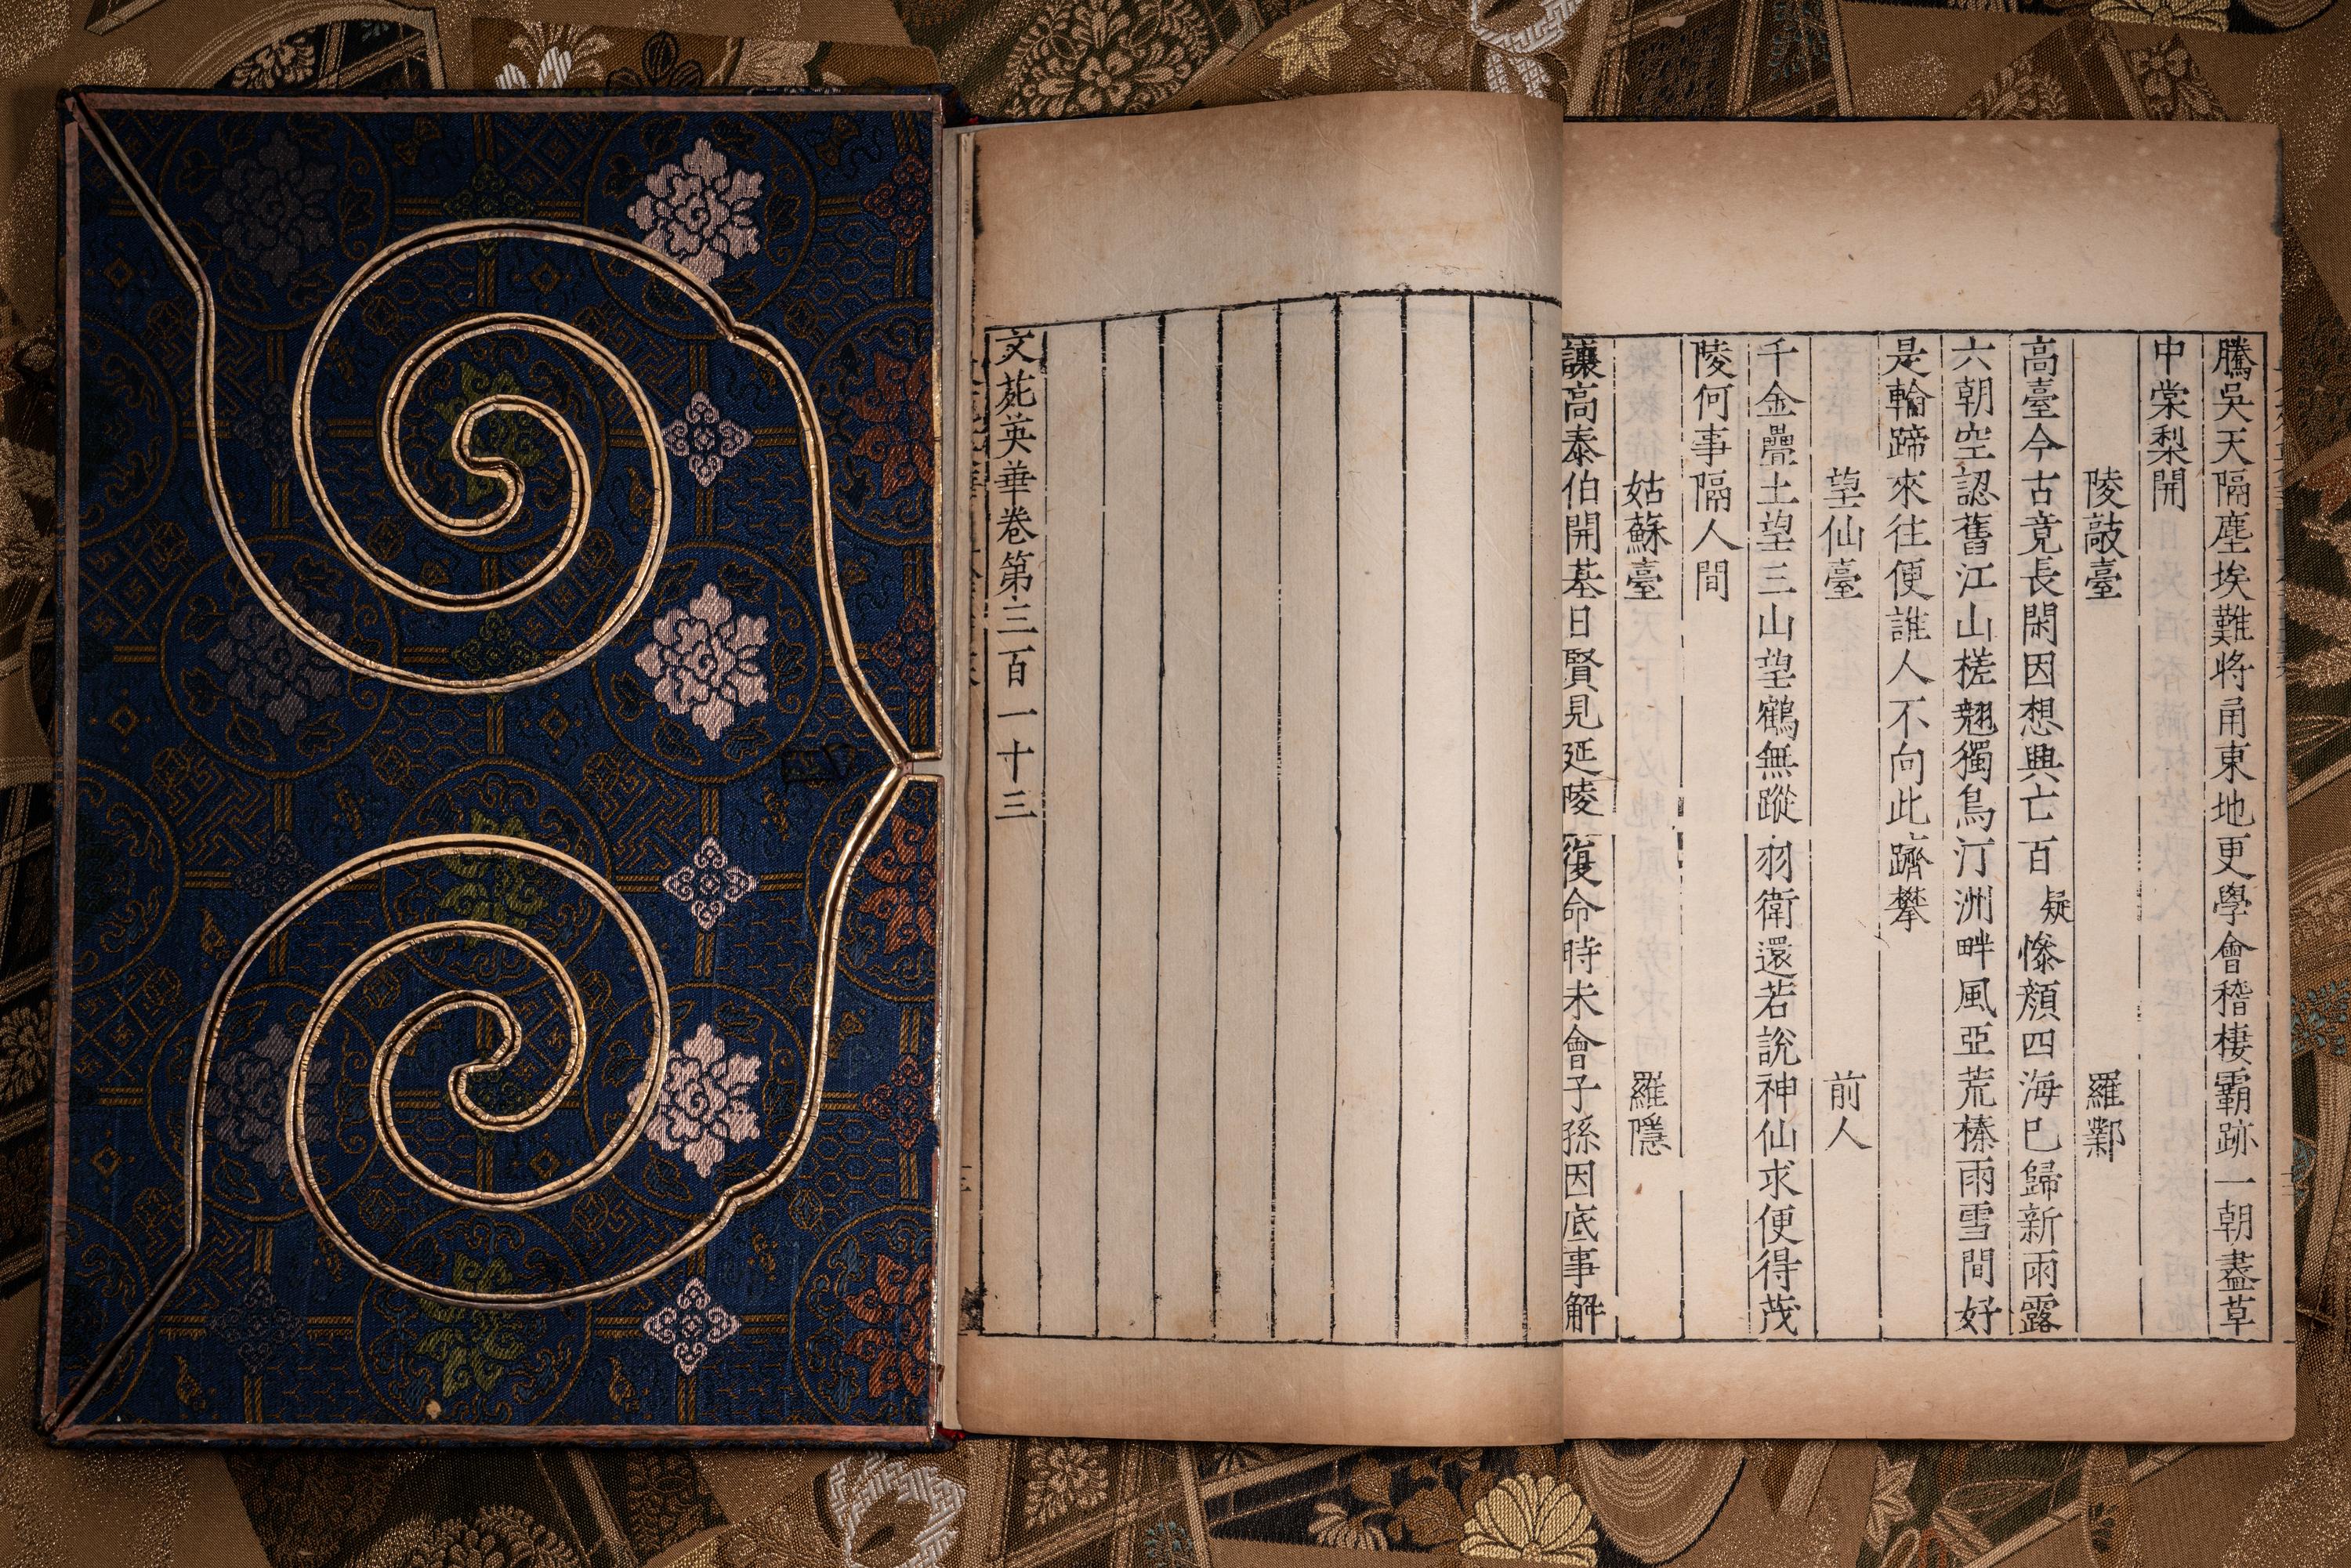 騰吳天隔塵埃難將甬東地更學會稽棲霸跡一朝盡草
中棠梨開
陵敲臺 羅鄴
高臺今古竟長閑因想興亡百疑慘顔四海已歸新雨露
六朝空認舊江山槎翹獨鳥汀洲畔風亞荒榛雨雪間好
是輪蹄來往便誰人不向此躋攀
望仙臺 前人
千金壘土望三山望鶴無蹤羽衛還若說神仙求便得茂
陵何事隔人間
姑蘇臺 羅隱
讓高泰伯開基日賢見延陵復命時未會子孫因底事解
文苑英華卷第三百一十三